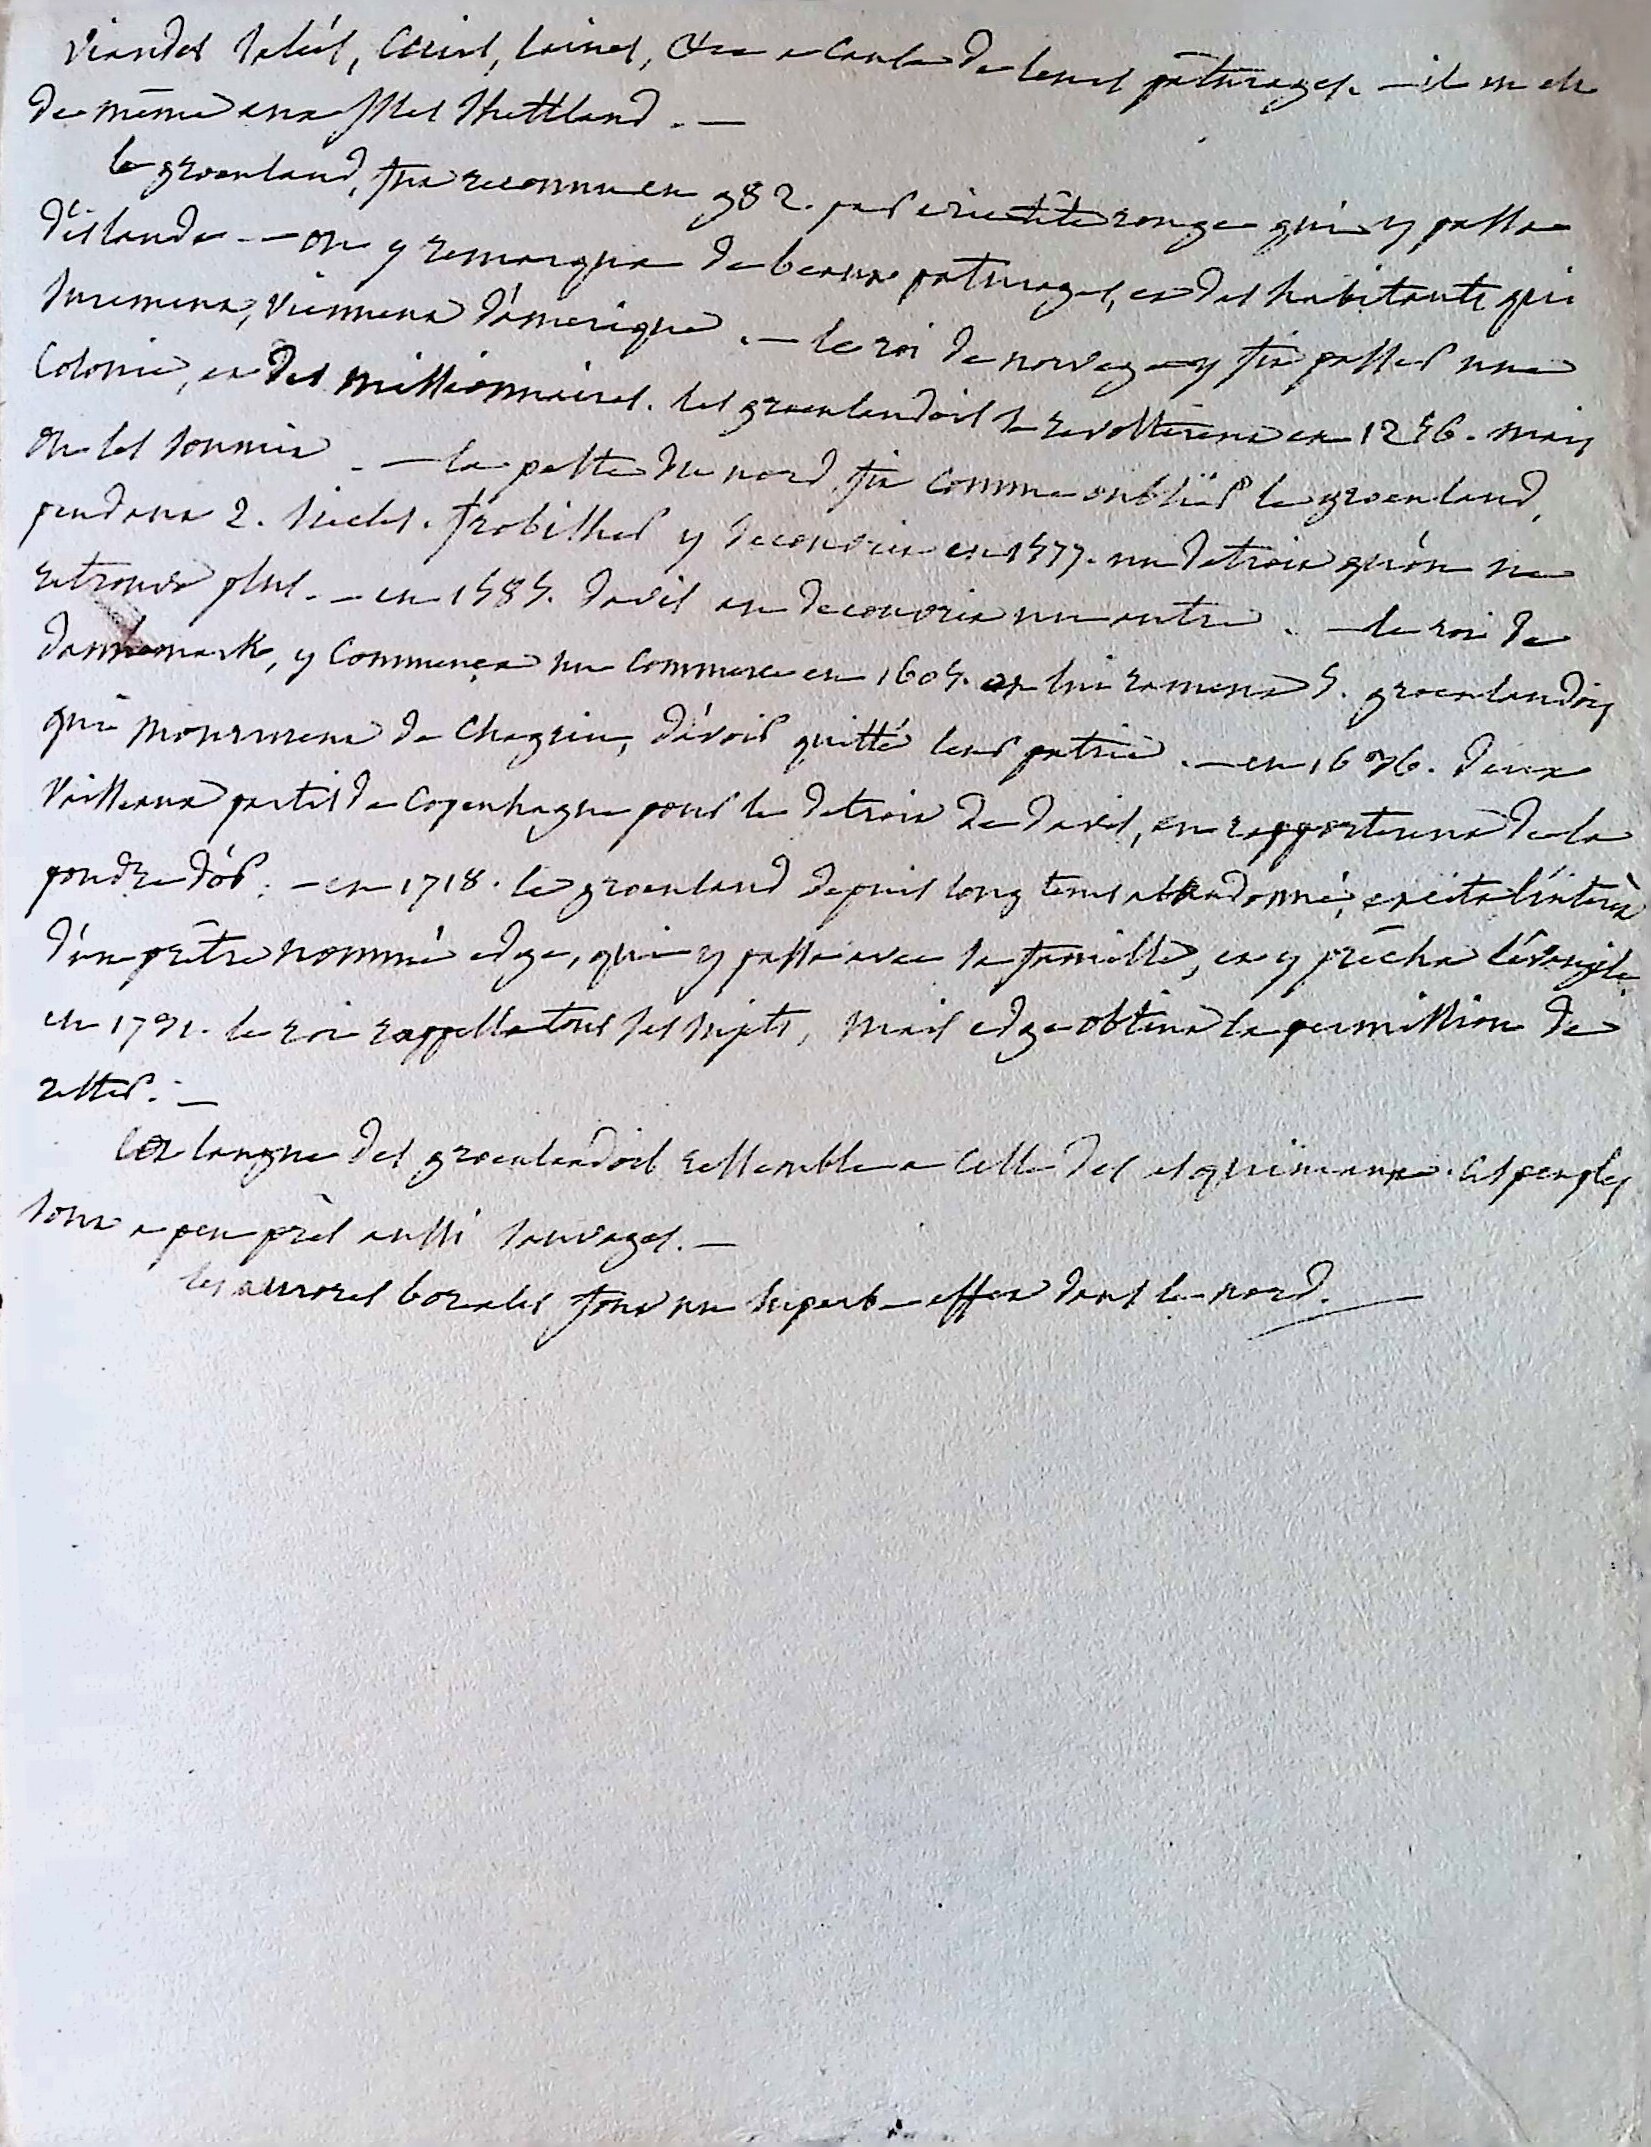 viandes salées, Cuirs, laines, &c a Cause de leurs pâturages. — il en est
de même aux Isles Shettland. —
le groenland, fut reconnu en 982. par eric tête rouge qui y passa
d'islande. — on y remarqua de beaux paturages, et des habitants qui
surement, viennent d'amerique. — le roi de norvege y fit passer une
Colonie, et des missionnaires. les groenlandois se revolterent en 1256. mais
on les soumit. — la peste du nord fit comme oublier le groenland,
pendant 2. siecles. frobisher y decouvrit en 1577. un detroit qu'on ne
retrouve plus. — en 1585. davis en decouvrit un autre. — le roi de
dannemark, y Commença un Commerce en 1605. on lui ramena 5. groenlandois
qui moururent de Chagrin, d'avoir quitté leur patrie. — en 1636. deux
Vaisseaux partis de Copenhague pour le detroit de davis, en rapporterent de la
poudre d'or. — en 1718. le groenland depuis long tems abandonné, excita l'intérêt
d'un prêtre nommé edge, qui y passa avec sa famille, et y prêcha l'évangile
en 1731. le roi rappella tous ses sujets, mais edge obtint la permission de
rester. —
la langue des groenlandois ressemble a celle des esquimaux. Ces peuples
sont a peu près aussi sauvages. —
les aurores borales font un superbe effet dans le nord.